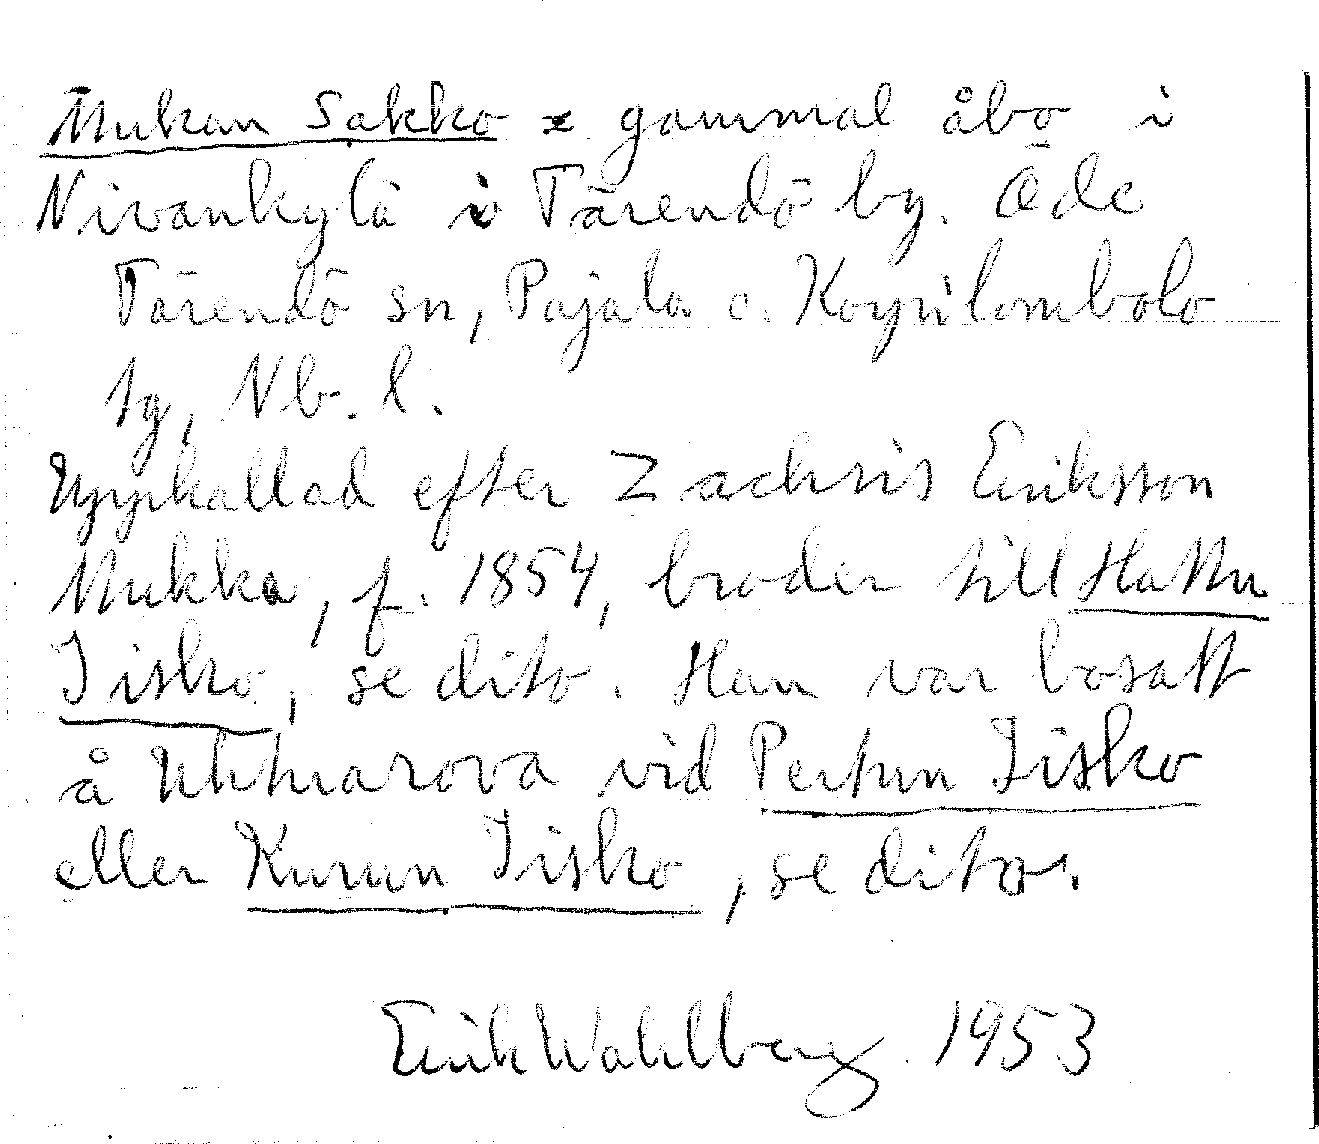 Mukan Sakko = gammal åbo i
Nivankylä i Tärendö by. Öde
Tärendö sn, Pajala o. Korpilombolo
tg, Nb. l.
Uppkallad efter Zachris Eriksson
Mukka, f. 1854, broder till Hattu
Iisko, se dito. Han var bosatt
å Uhtiarova vid Pertun Iisko
eller Kurun Iisko, se dito.
Erik Wahlberg 1953